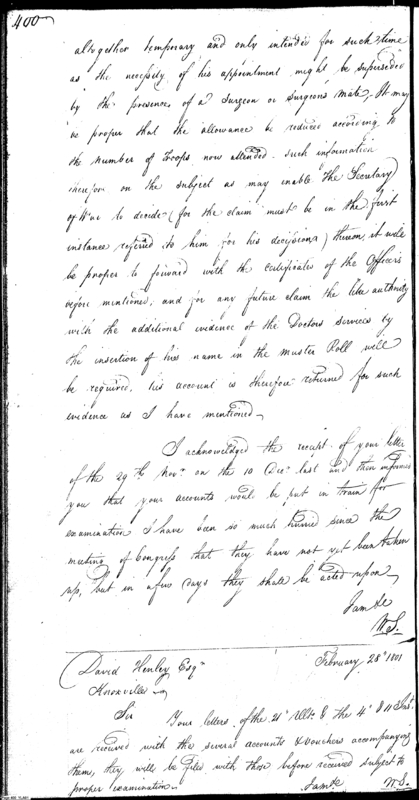 400
altogether temporary and only intended for such time
as the necessity of his appointment might be superseded
by the presence of a Surgeon or Surgeons Mate, It may
be proper that the allowance be reduced according to
the number of Troops now attended. such information
therefor on the subject as may enable the Secretary
of War to decide (for the claim must be in the first
instance referred to him for his decisions) thereon, it will
be proper to forward with the certificates of the Officers
before mentioned, and for any future claim the like authority
with the additional evidence of the Doctors services by
the insertion of his name in the Muster Roll will
be required, his account is therefore returned for such
evidence as I have mentioned
I acknowledged the receipt of your letter
of the 29th Novr. on the 10 Decr. last and then informed
you that your accounts would be put in train for
examination I have been so much hurried since the
meeting of Congress that they have not yet been taken
up, but in a few days they shall be acted upon
I am &c
W S.
David Henley Esqr
February 28th 1801
Knoxville
Sir
Your letters of the 21st Ulto. & the 4th & 11 Inst.
are received with the several accounts & vouchers accompanying
them, they will be filed with those before received subject to
proper examination. I am &c W S.